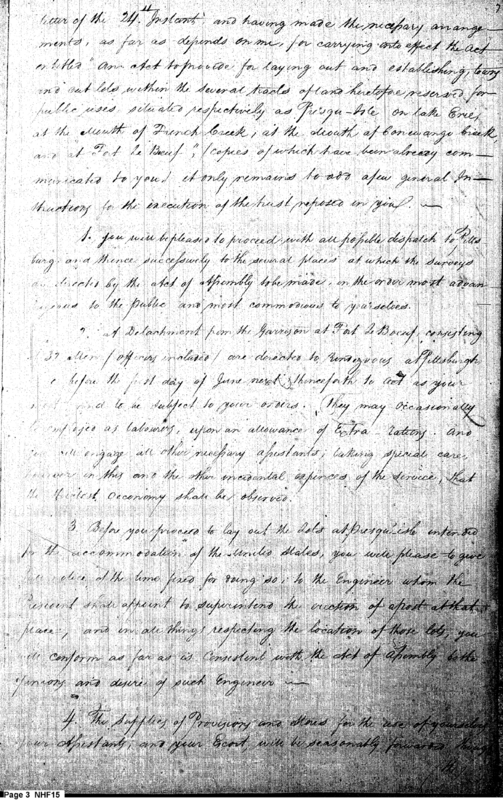 letter of the 24th Instant, and having made the necessary arrange-
ments, as far as depends on me, for carrying into effect the Act
entitled "An Act to provide for laying out and establishing, towns
and out lots, within the several tracts of land heretofore reserved, for
public uses, situated respectively as Presqu-Isle on lake Erie,
at the Mouth of French Creek, at the Mouth of Conewango Creek
and at Fort le Boeuf," (copies of which have been already com-
municated to you) it only remains to add a few general In-
structions for the execution of the trust reposed in you. —
1. You will be pleased to proceed with all possible dispatch to Pitts
burg, and thence successively to the several places at which the surveys
are directed by the act of Assembly to be made, in the order most advan
to the Public and most commodious to yourselves.
A Detachment from the Garrison at Fort le Boeuf, consisting
of 37 Men (officers inclused) are directed to rendezvous at Pittsburgh
before the first day of June next, thenceforth to Act as your
and to be subject to your orders. They may Occasionally
be employed as labourers, upon an allowance of Extra rations. And
you will engage all other necessary assistants; taking special care,
however in this and the other incidental expences of the service, that
the strictest Oeconomy shall be observed.
3. Before you proceed to lay out the lots at Presqu'isle intended
for the accommodation of the United States, you will please to give
notice of the time fixed for doing so, to the Engineer whom the
President shall appoint to superintend the erection of a post at that
place, and in all things respecting the location of those lots, you
will conform as far as is Consistent with the Act of Assembly to the
opinions and desires of such Engineer —
4. The Supplies of Provisions and Stores for the use of yourselves
your Assistants, and your Escort, will be seasonably forwarded
Page 3 NHF15